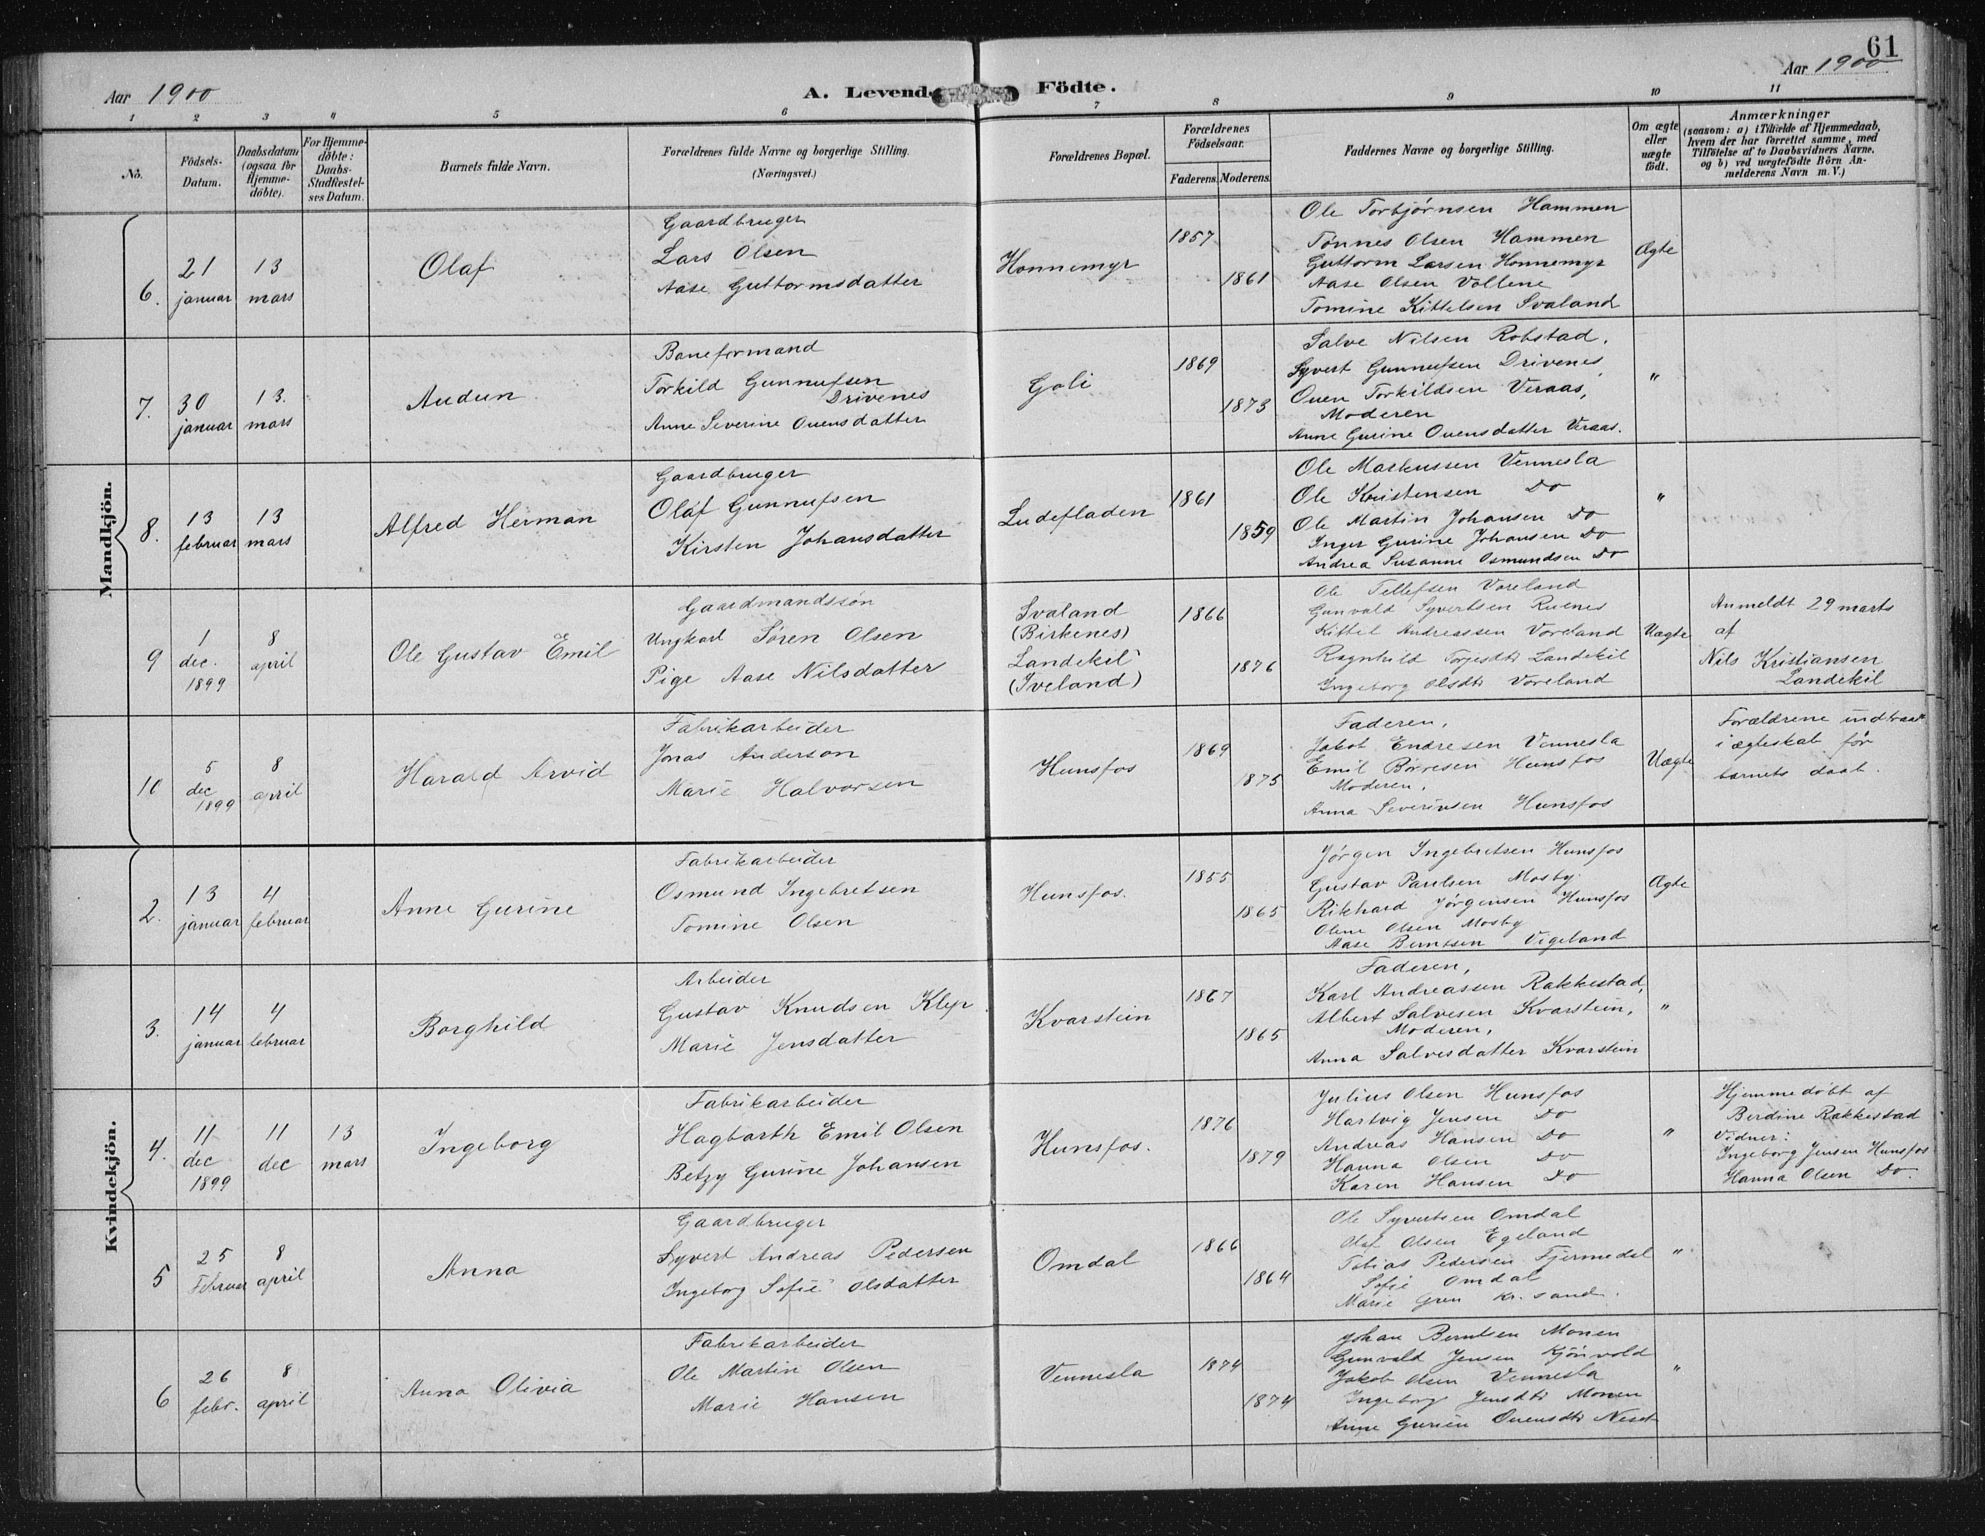 61
Aar 1900
A. Levende Födte.
Aar 1900
1 2 3 4 5 6 7 8 9 10 11
No.
Födsels-Datum.
Daabsdatum (ogsaa for Hjemme-döbte).
For Hjemme-döbte: Daabs-Stadfæstel-ses Datum.
Barnets fulde Navn.
Forældrenes fulde Navne og borgerlige Stilling.
(Næringsvei.)
Forældrenes Bopæl.
Forældrenes Födselsaar.
Faderens. Moderens.
Faddernes Navne og borgerlige Stilling.
Om ægte eller uægte födt.
Anmærkninger
(saasom: a) i Tilfælde af Hjemmedaab,
hvem der har forrettet samme, med
Tilföielse af to Daabsvidners Navne,
og b) ved uægtefödte Börn An-
melderens Navn m. V.)
Mandkjön.
6.
21 januar
13 mars
Olaf
Gaardbruger
Lars Olsen
Aase Guttormsdatter
Honnemyr
1857
1861
Ole Torbjørnsen Hammen
Tønnes Olsen Hammen
Guttorm Larsen Honnemyr
Aase Olsen Vollene
Tomine Kittelsen Svaland
Ægte
7.
30 januar
13. mars
Audun
Baneformand
Torkild Gunnufsen
Drivenes
Anne Severine Ouensdatter
Goli
1869
1873
Salve Nilsen Robstad.
Syvert Gunnufsen Drivenes,
Ouen Torkildsen Veraas,
Moderen
Anne Gurine Ouensdatter Veraas.
"
8.
13 februar
13 mars
Alfred Herman
Gaardbruger
Olaf Gunnufsen
Kirsten Johansdatter
Ludefladen
1861
1859
Ole Markussen Vennesla
Ole Kristensen Do
Ole Martin Johansen Do
Inger Gurine Johansen Do
Andrea Susanne Osmundsen Do
"
9
1 dec. 1899
8 april
Ole Gustav Emil
Gaardmandssøn
Ungkarl Søren Olsen
Pige Aase Nilsdatter
Svaland
(Birkenes)
Landekil
(Iveland)
1866
1876
Ole Tellefsen Voreland
Gunvald Syvertsen Ruenes
Kittel Andreassen Voreland
Ragnhild Torjesdtr Landekil
Ingeborg Olsdtr Voreland
Uægte
Anmeldt 29 marts
af
Nils Kristiansen
Landekil
10
5 dec 1899
8 april
Harald Arvid
Fabrikarbeider
Jonas Anderson
Marie Halvorsen
Hunsfos
1869
1875
Faderen,
Jakob Endresen Vennesla
Emil Børresen Hunsfos
Moderen,
Anna Severinsen Hunsfos
Uægte
Forældrene indtraadt
i ægteskab før
barnets daab.
Kvindekjön.
2.
13 januar
4 februar
Anne Gurine
Fabrikarbeider
Osmund Ingebretsen
Tomine Olsen
Hunsfos.
1855
1865
Jørgen Ingebretsen Hunsfos
Gustav Paulsen Mosby
Rikhard Jørgensen Hunsfos
Oline Olsen Mosby
Aase Berntsen Vigeland
Ægte
3.
14 januar
4 februar
Borghild
Arbeider
Gustav Knudsen Klep.
Marie Jensdatter
Kvarstein
1867
1865
Faderen,
Karl Andreassen Rakkestad,
Albert Salvesen Kvarstein,
Moderen,
Anna Salvesdatter Kvarstein
"
4.
11 dec 1899
11 dec
13 mars
Ingeborg
Fabrikarbeider
Hagbarth Emil Olsen
Betzy Gurine Johansen
Hunsfos.
1876
1879
Julius Olsen Hunsfos
Hartvig Jensen Do
Andreas Hansen Do
Hanna Olsen Do
Karen Hansen Do
"
Hjemmedøbt af
Berdine Rakkestad
Vidner:
Ingeborg Jensen Hunsfos
Hanna Olsen Do.
5
25 Februar
8 april
Anna
Gaardbruger
Syvert Andreas Pedersen
Ingeborg Sofie Olsdatter
Omdal
1866
1864
Ole Syvertsen Omdal
Olaf Olsen Egeland
Tobias Pedersen Fjermedal
Sofie Omdal
Marie Gren Kr. sand.
"
6
26 febr.
8 april
Anna Olivia
Fabrikarbeider
Ole Martin Olsen
Marie Hansen
Vennesla
1874
1874
Johan Berntsen Monen
Gunvald Jensen Kjønvold
Jakob Olsen Vennesla
Ingeborg Jensdtr Monen
Anne Gurine Ouensdtr Neset
"